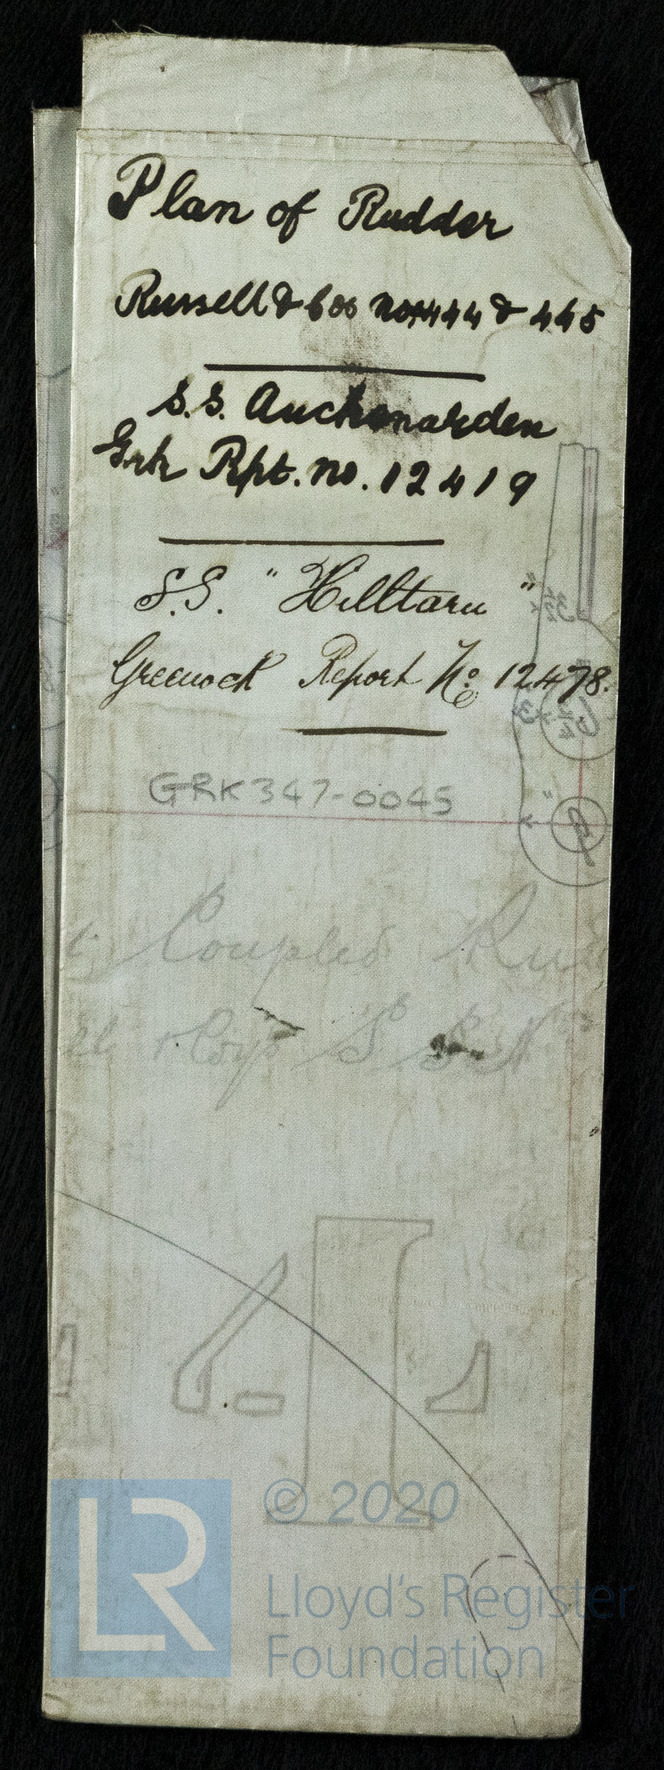 Plan of Rudder
Russell & Cos Nos 444 & 445
S.S. Auchenarden
Grk Rpt. No. 12419
S.S. "Hilltarn"
Greenock Report No. 12478.
GRK347-0045
Coupled
LR
© 2020
Lloyd's Register
Foundation